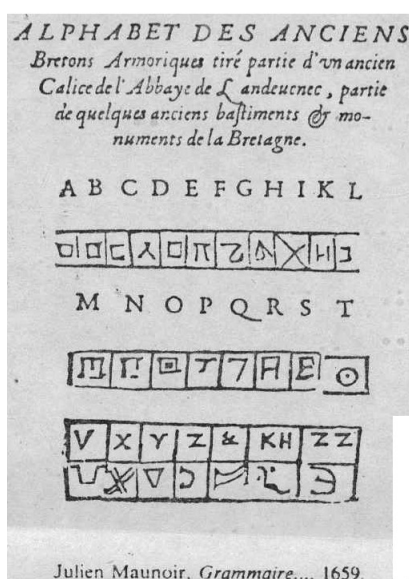 ALPHABET DES ANCIENS
Bretons Armoriques tiré partie d'vn ancien
Calice de l'Abbaye de Landeuenec, partie
de quelques anciens baſtiments & mo-
numents de la Bretagne.
A B C D E F G H I K L
M N O P Q R S T
V X Y Z & KH ZZ
Julien Maunoir, Grammaire..., 1659.